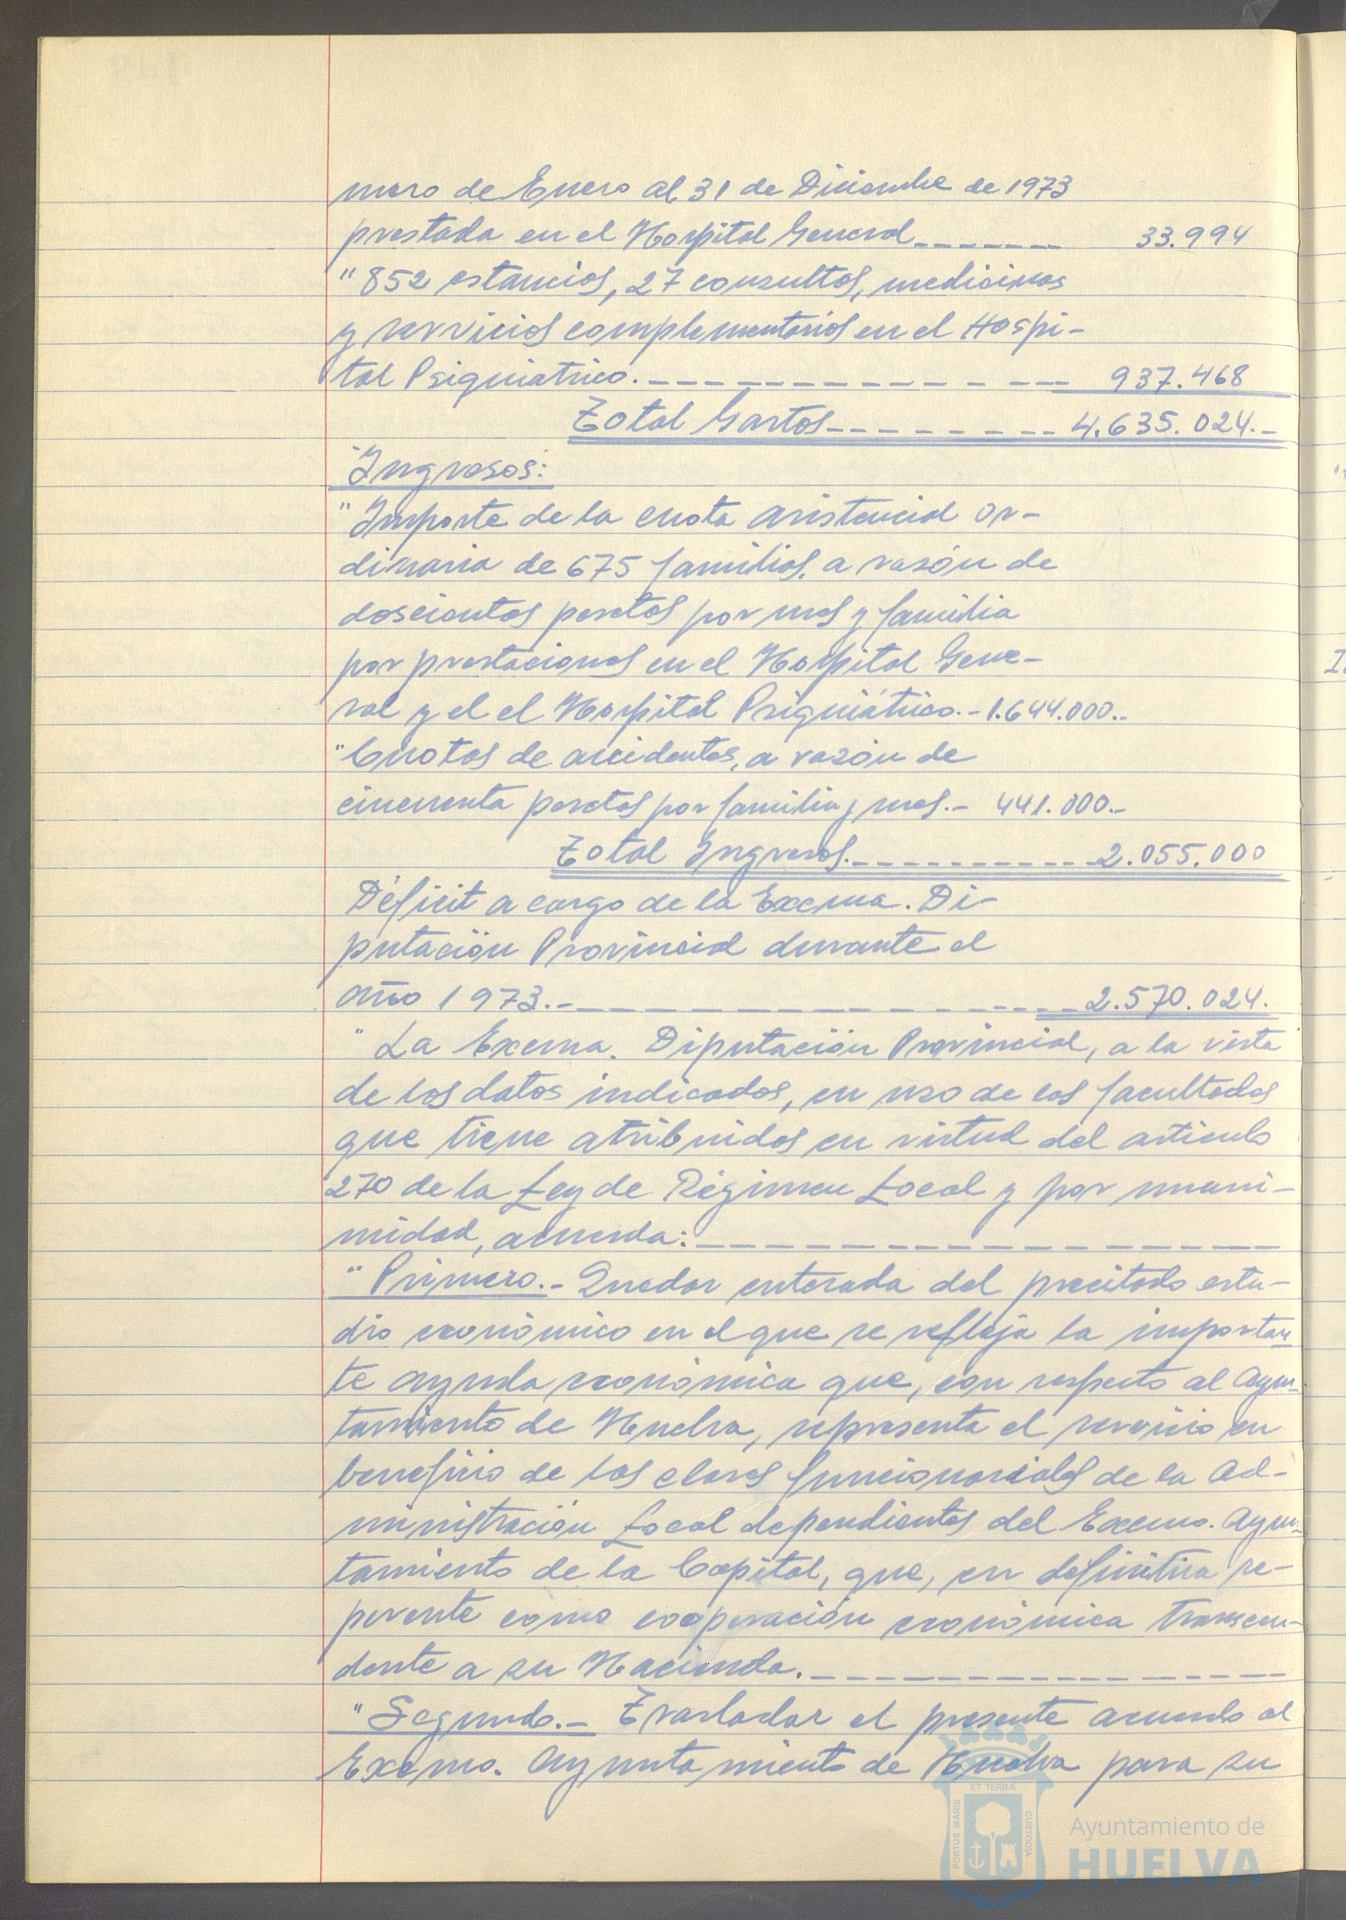 mero de Enero al 31 de Diciembre de 1973
prestada en el Hospital General_______ 33.994
"852 estancias, 27 consultas, medicinas
y servicios complementarios en el Hospi-
tal Psiquiatrico.____________ 937.468
Total Gastos________ 4.635.024.-
"Ingresos:
"Importe de la cuota asistencial or-
dinaria de 675 familias, a razón de
doscientas pesetas por mes y familia
por prestaciones en el Hospital Gene-
ral y el el Hospital Psiquiátrico.-1.644.000.-
"Cuotas de accidentes, a razón de
cincuenta pesetas por familia y mes.- 441.000.-
Total Ingresos.__________2.055.000
Déficit a cargo de la Excma. Di-
putación Provincial durante el
año 1973.-______________2.570.024.
"La Excma. Diputación Provincial, a la vista
de los datos indicados, en uso de las facultades
que tiene atribuidas en virtud del articulo
270 de la Ley de Régimen Local y por unani-
midad, acuerda:________________
"Primero.- Quedar enterada del precitado estu-
dio económico en el que se refleja la importan
te ayuda económica que, con respecto al Ayun-
tamiento de Huelva, representa el servicio en
beneficio de las clases funcionariales de la Ad-
ministración Local dependientes del Excmo. Ayun-
tamiento de la Capital, que, en definitiva re-
percute como cooperación económica transcen-
dente a su Hacienda.______________
"Segundo.- Trasladar el presente acuerdo al
Excmo. Ayuntamiento de Huelva para su
PORTUS MARIS
ET TERRÆ
CUSTODIA
Ayuntamiento de
HUELVA